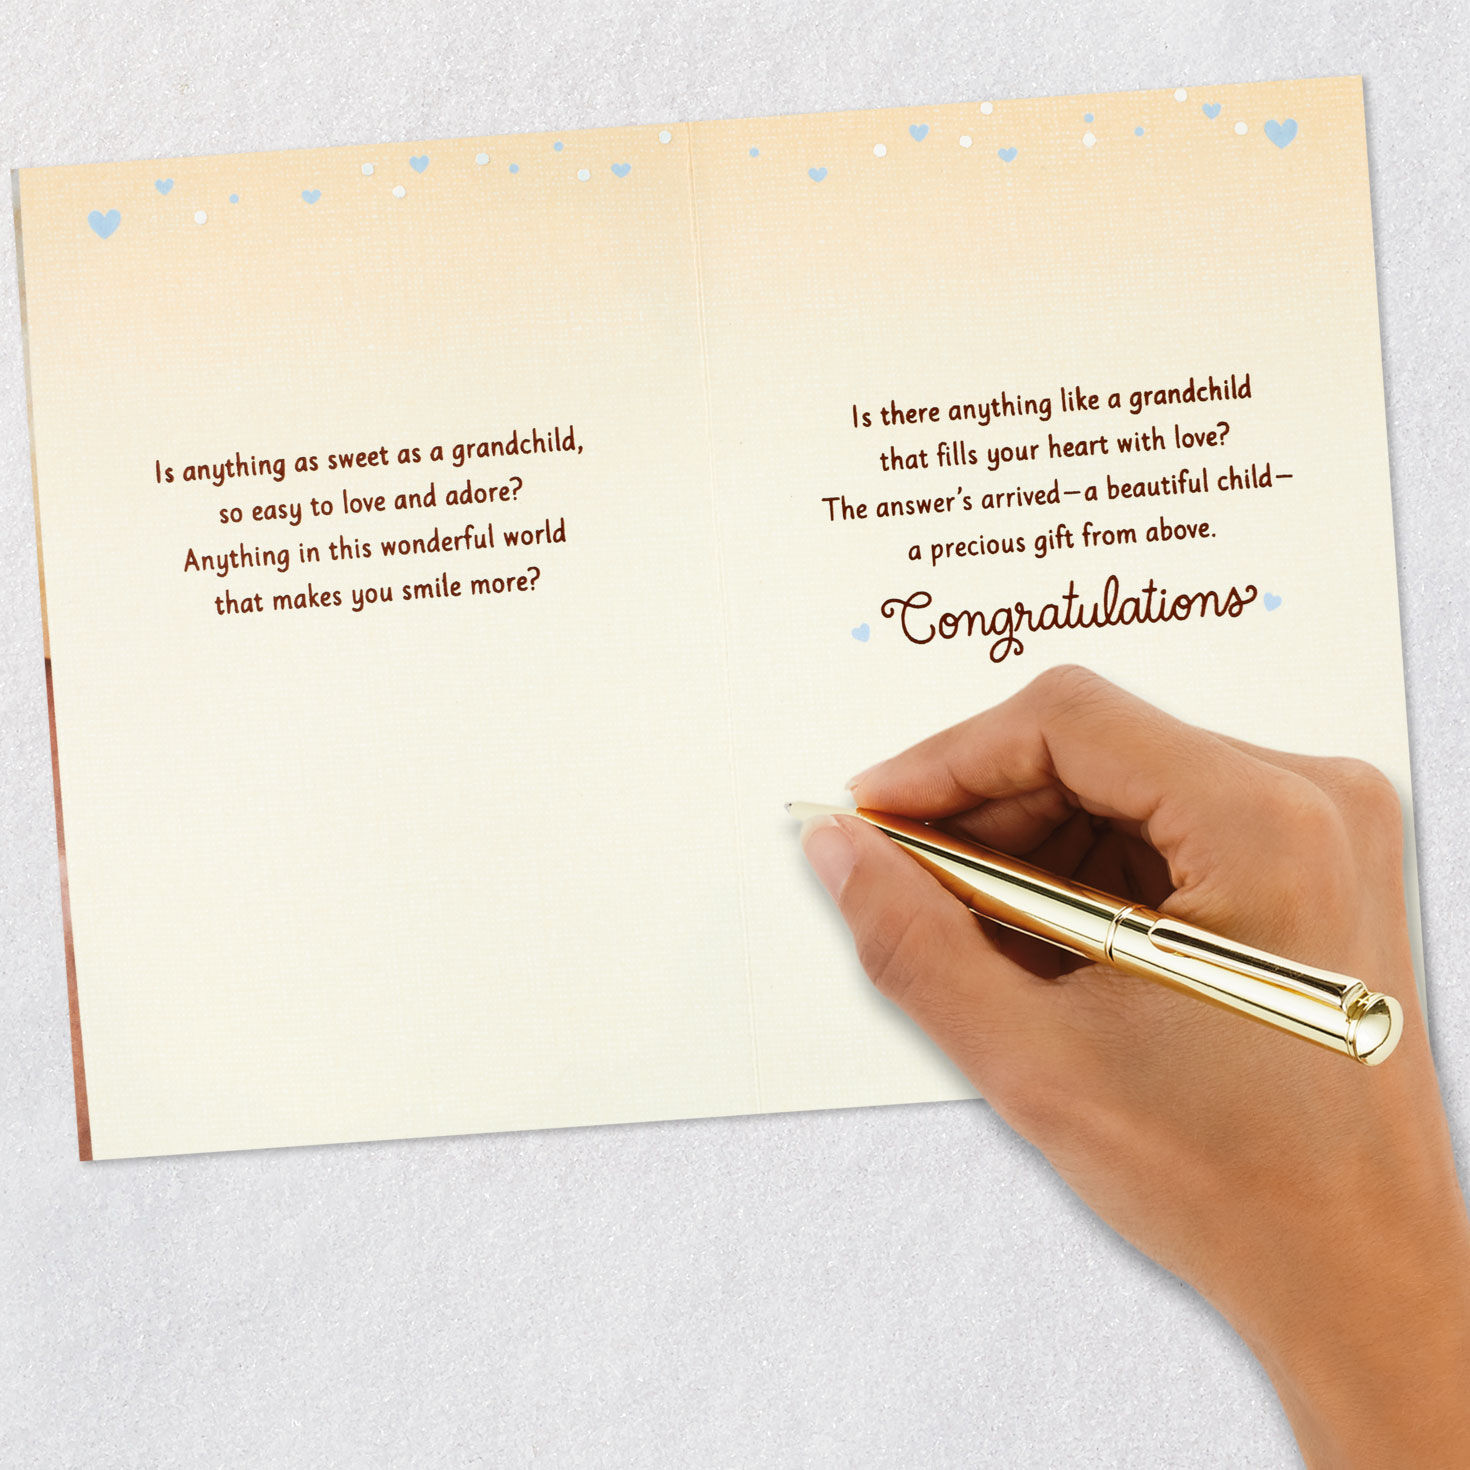 Is anything as sweet as a grandchild,
so easy to love and adore?
Anything in this wonderful world
that makes you smile more?
Is there anything like a grandchild
that fills your heart with love?
The answer's arrived—a beautiful child—
a precious gift from above.
Congratulations